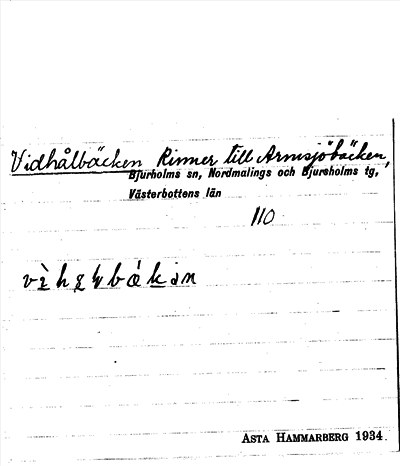 Vidhålbäcken Rinner till Armsjöbäcken,
Bjurholms sn, Nordmalings och Bjurholms tg,
Västerbottens län
110
ASTA HAMMARBERG 1934.